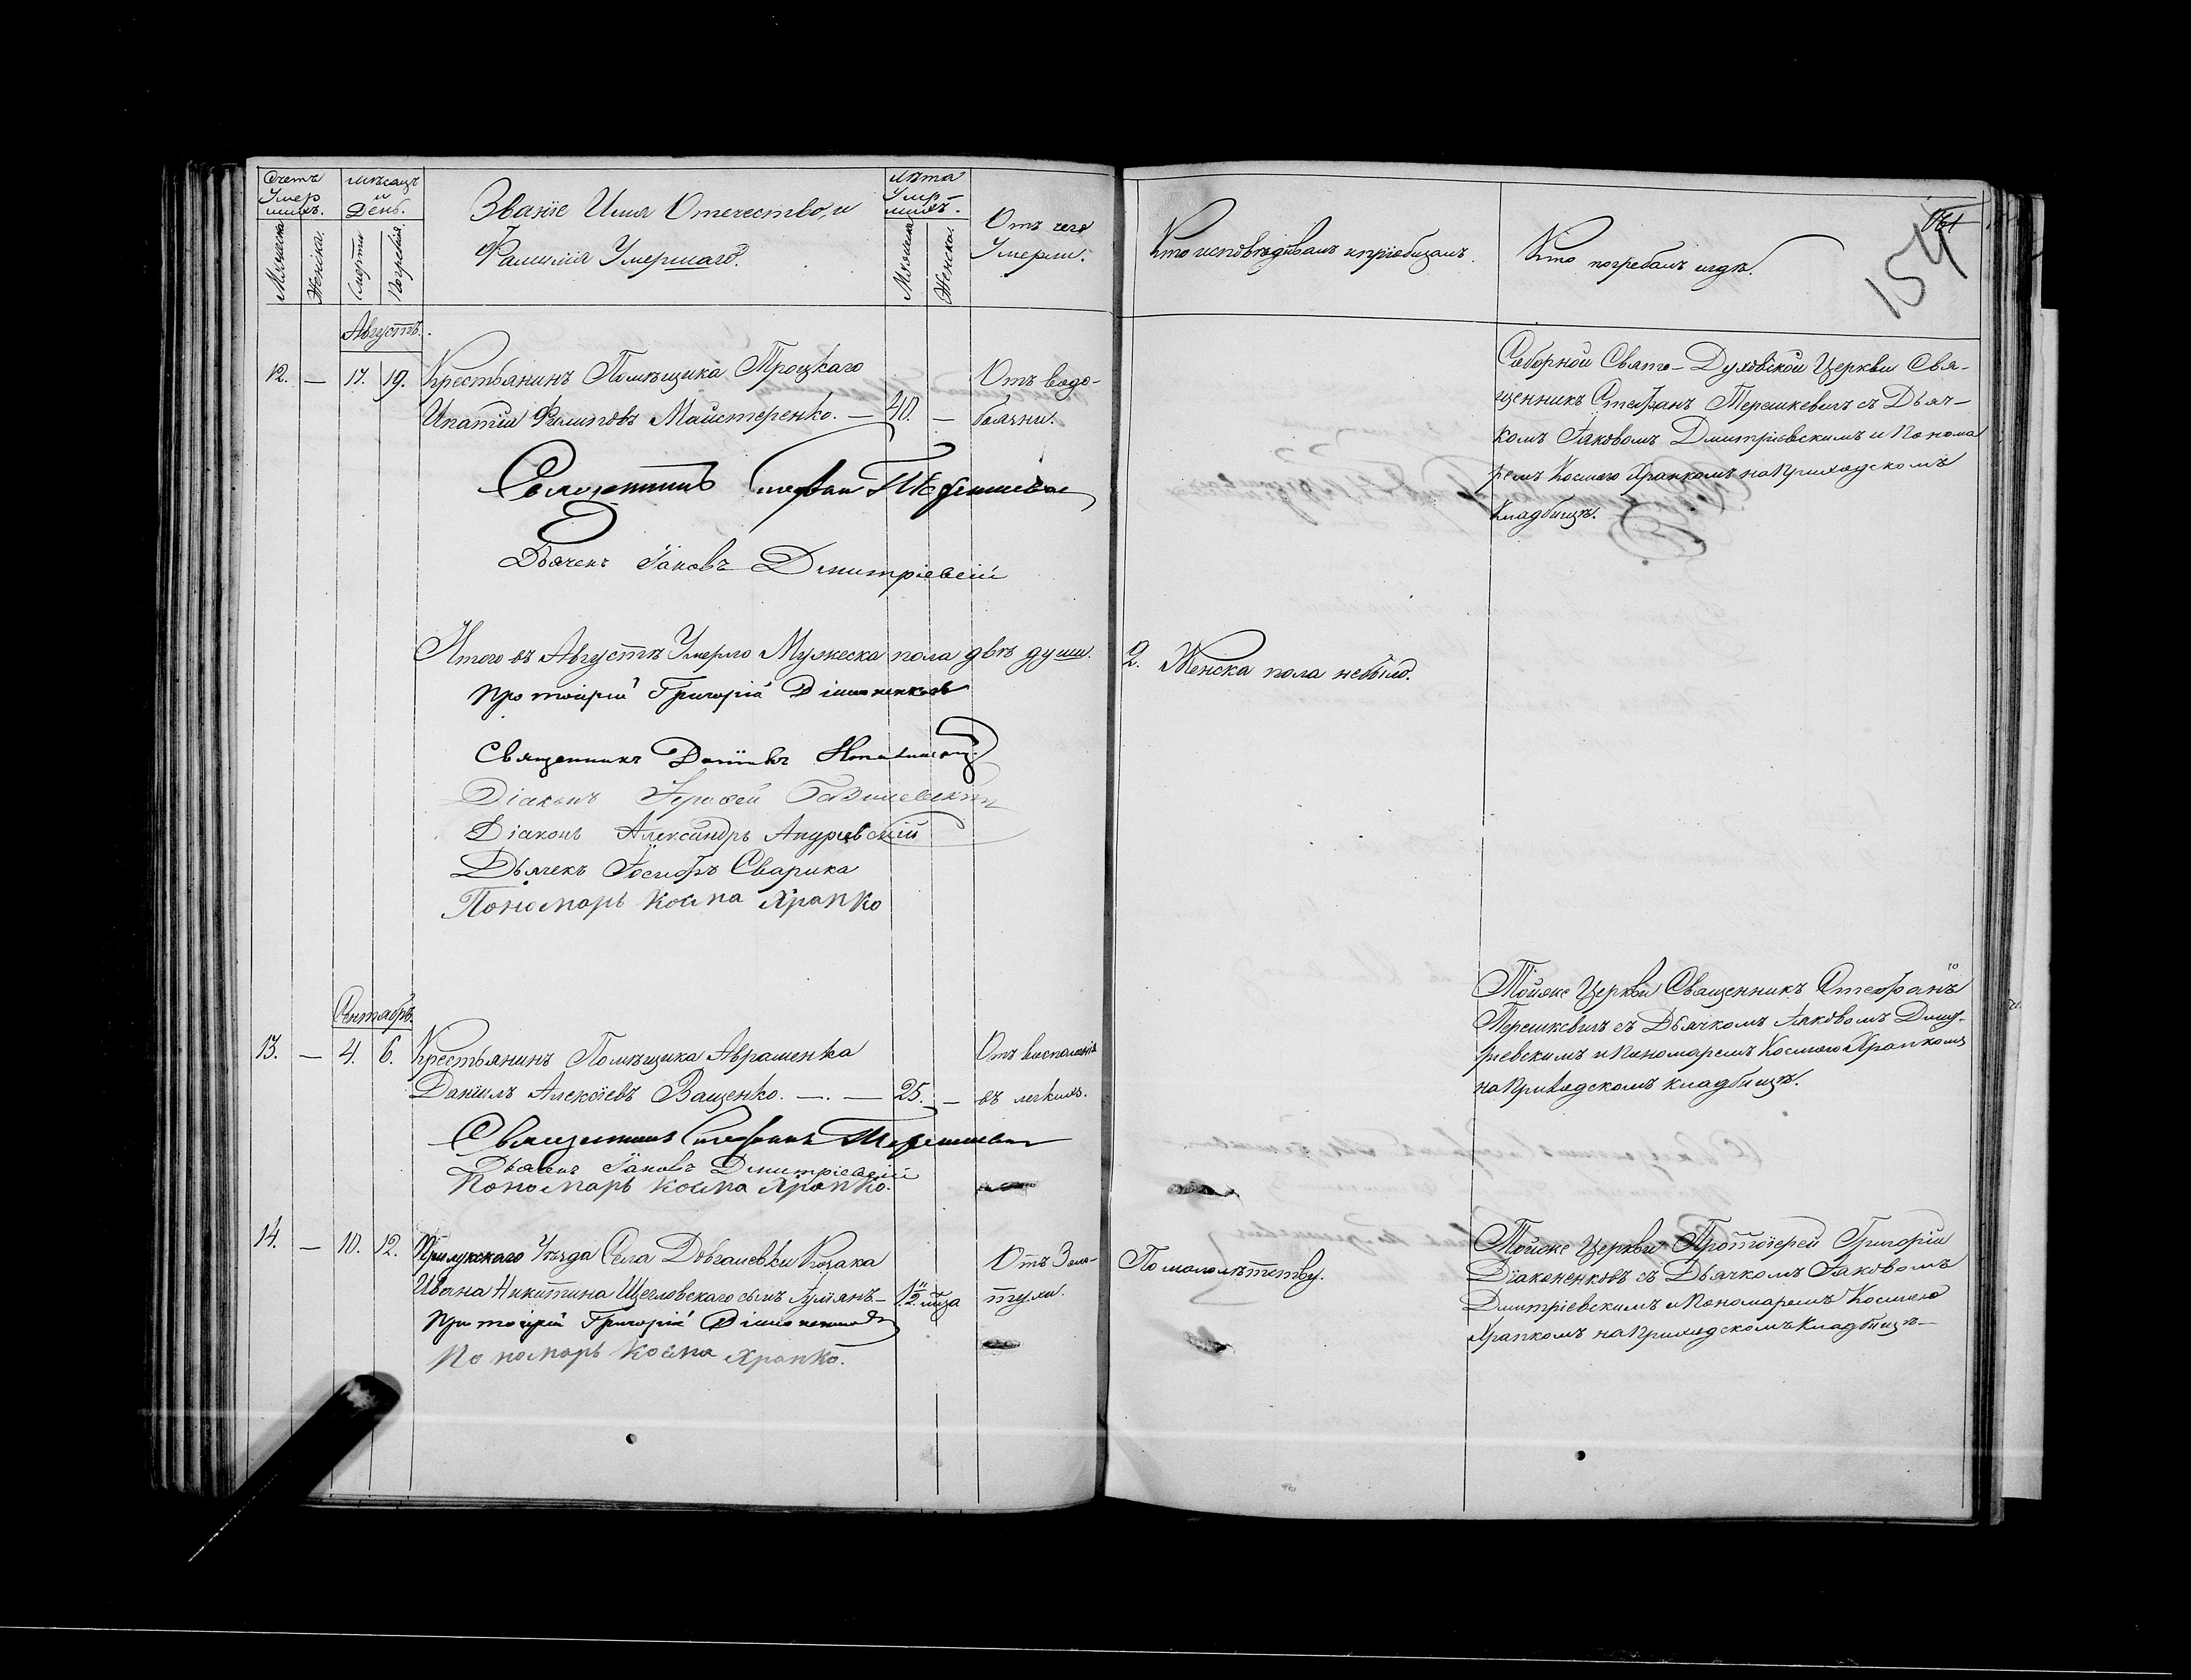 Счетъ Умер шихъ.
Мѣсяцъ и День.
Званіе Имя Отечество, и
Фамилія Умершаго.
Лѣта Умер- шихъ.
Отъ чего
Умерли.
Мужеска
Женска.
Смерти
Погребенія.
Мужеска
Женска.
Кто исповѣдывалъ и пріобщалъ.
Кто погребалъ и гдѣ.
154
Августъ.
12. — 17. 19. Крестьянинъ Помѣщика Троцкаго
Ипатій Филиповъ Майстеренко. — 40. —
Отъ водо-
болчни.
Соборной Свято-Духовской Церкви Свя-
щенникъ Стефанъ Терешкевичъ съ Дьяч-
комъ Іаковомъ Дмитріевскимъ и Понома
ремъ Космою Храпкомъ на Приходскомъ
Кладбищѣ.
Священникъ Стефанъ Терешкевич
Дьячекъ Іаковъ Дмитріевскій
Итого въ Августѣ Умерло Мужеска пола двѣ души.
2. Женска пола небыло.
Протоіерей Григорій Діаконенковъ
Священникъ Даніилъ
Діаконъ Іерофей
Діаконъ Александръ Андріевскій
Дьячекъ Іосифъ Сварика
Пономарь Косма Храпко
Сентябрь.
13. — 4. 6. Крестьянинъ Помѣщика Авраменка
Даніилъ Алексіевъ Ващенко. —.— 25. —
Отъ воспаленія
въ легкихъ.
Тойже Церкви Священникъ Стефанъ
Терешкевичъ съ Дьячкомъ Іаковомъ Дми-
ріевскимъ и Пономаремъ Космою Храпкомъ
на Приходскомъ кладбищѣ.
Священникъ Стефанъ Терешкевич
Дьячекъ Іаковъ Дмитріевскій
Пономарь Косма Храпко.
14. — 10. 12. Прилукскаго Уѣзда Села Довгалевки Козака
Ивана Никитина Щегловскаго сынъ Іуліянъ — 1½ года
Отъ Золо-
тухи.
По малолѣтству.
Тойже Церкви Протоіерей Григорій
Діаконенковъ съ Дьячкомъ Іаковомъ
Дмитріевскимъ и Пономаремъ Космою
Храпкомъ на Приходскомъ Кладбищѣ —
Протоіерей Григорій Діаконенковъ
Пономарь Косма Храпко.